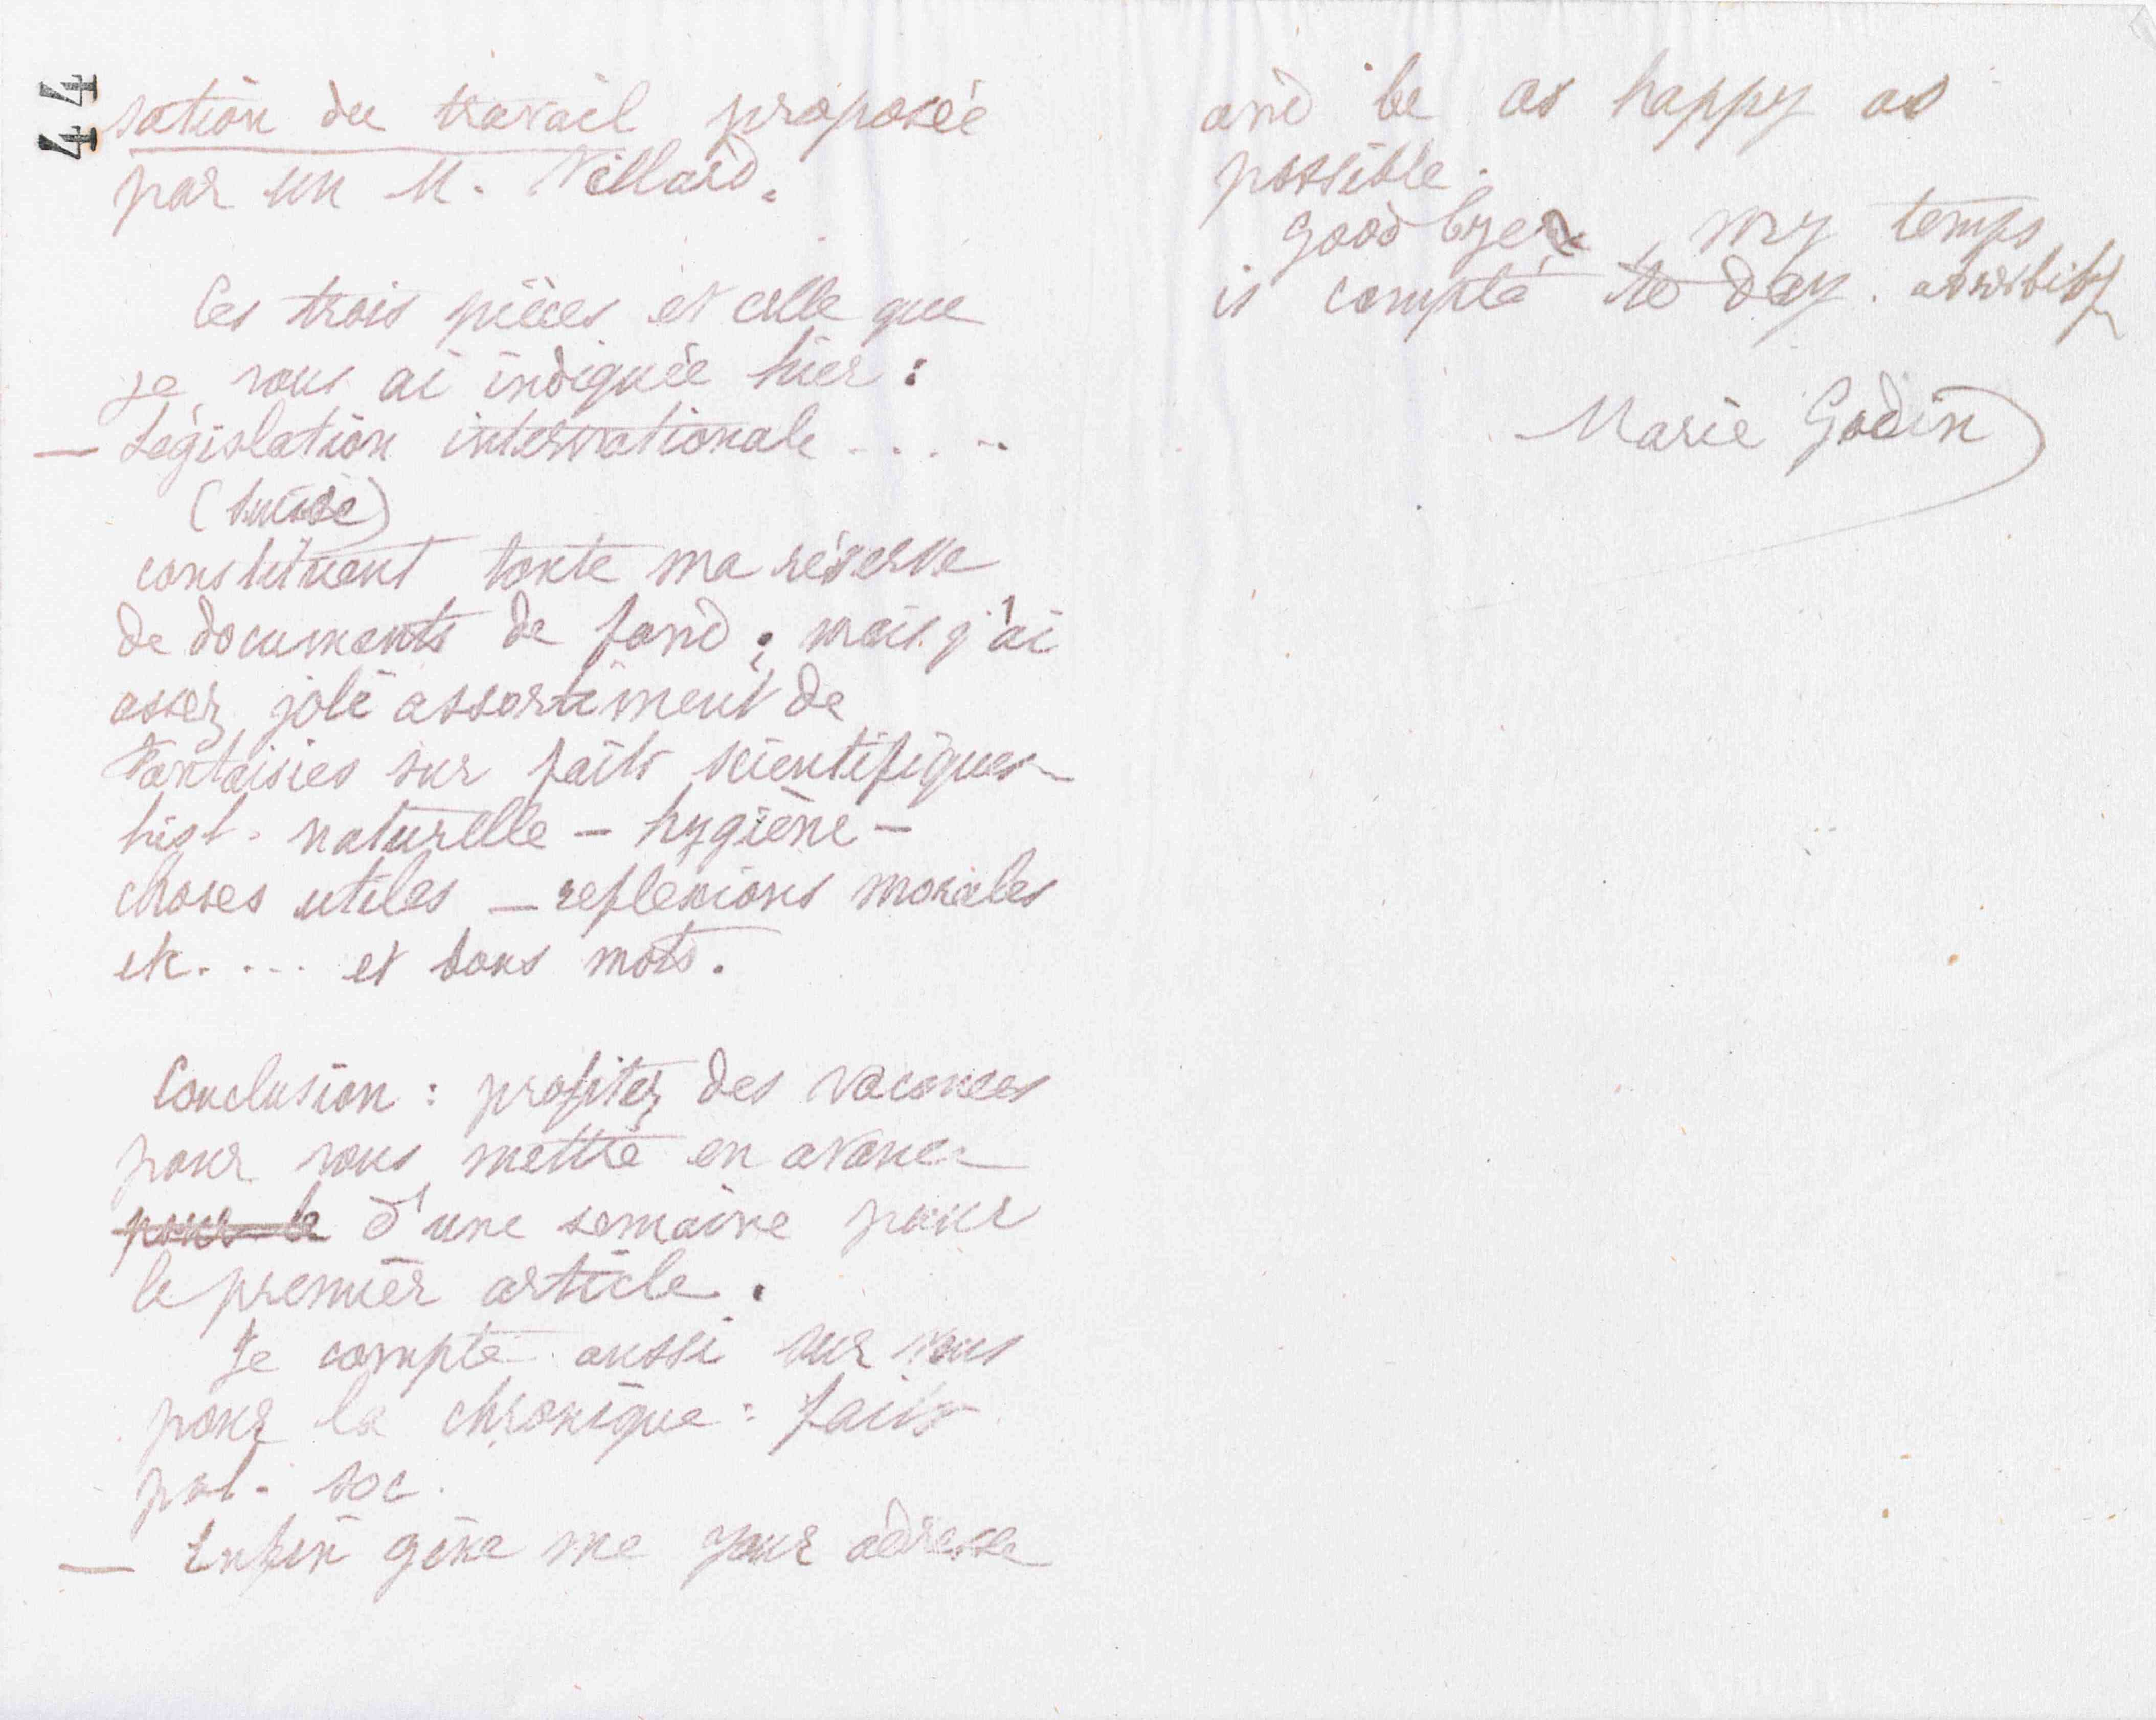 44
sation du travail proposée
par un M. Villard.
Ces trois pièces et celle que
je vous ai indiquée hier :
— Législation internationale . . . .
(Suisse)
constituent toute ma réserve
de documents de fond ; mais j'ai
assez joli assortiment de
fantaisies sur faits scientifiques
hist. naturelle – hygiène –
choses utiles – reflexions morales
etc. . . . et bons mots.
Conclusion : profitez des vacances
pour vous mettre en avance
pour le d'une semaine pour
le premier article.
Je compte aussi sur vous
pour la chronique : faits
pol. soc.
— Enfin give me your adresse
and be as happy as
possible.
Good bye, my temps
is compté to day.
Marie Godin